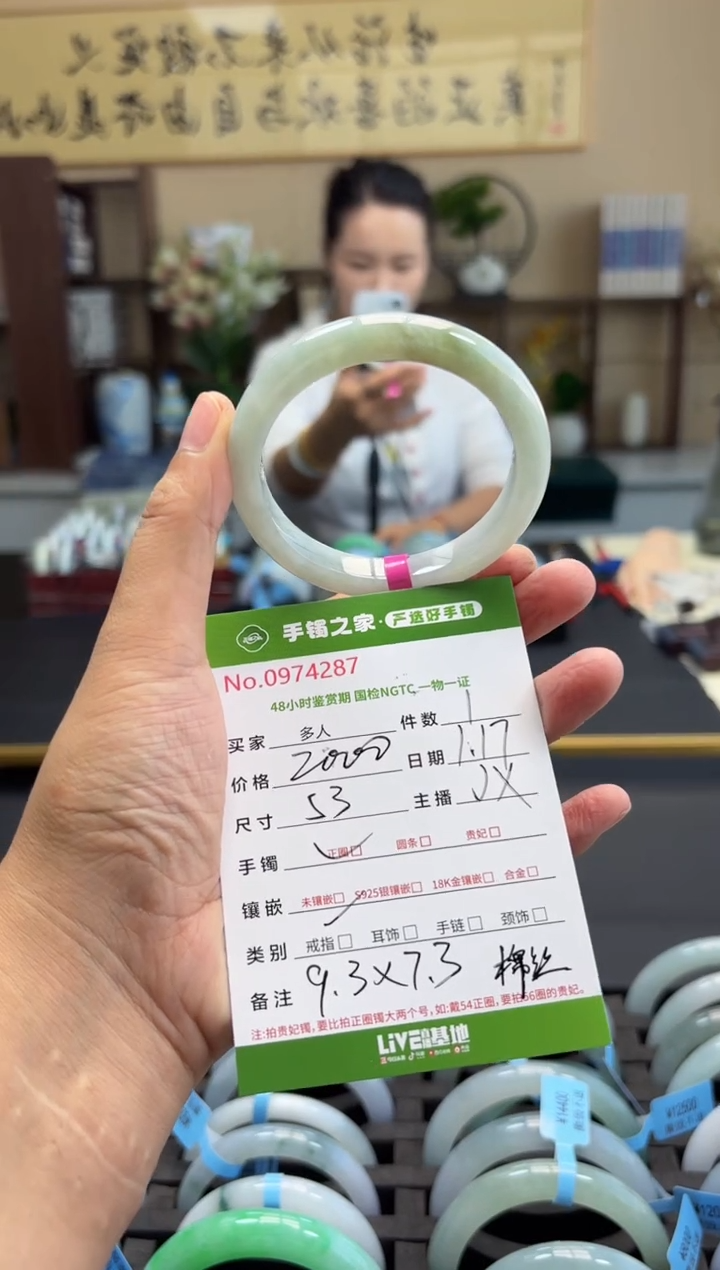 手镯之家·严选好手镯
No.0974287
48小时鉴赏期 国检NGTC 一物一证
买家 多人 件数 1
价格 2000 日期 1.17
尺寸 53 主播 JX
手镯 正圈□ 圆条□ 贵妃□
镶嵌 未镶嵌□ S925银镶嵌□ 18K金镶嵌□ 合金□
类别 戒指□ 耳饰□ 手链□ 颈饰□
备注 9.3×7.3 棉丝
注:拍贵妃镯,要比拍正圈镯大两个号,如:戴54正圈,要拍56圈的贵妃。
LIVE 基地
¥14400
¥12500